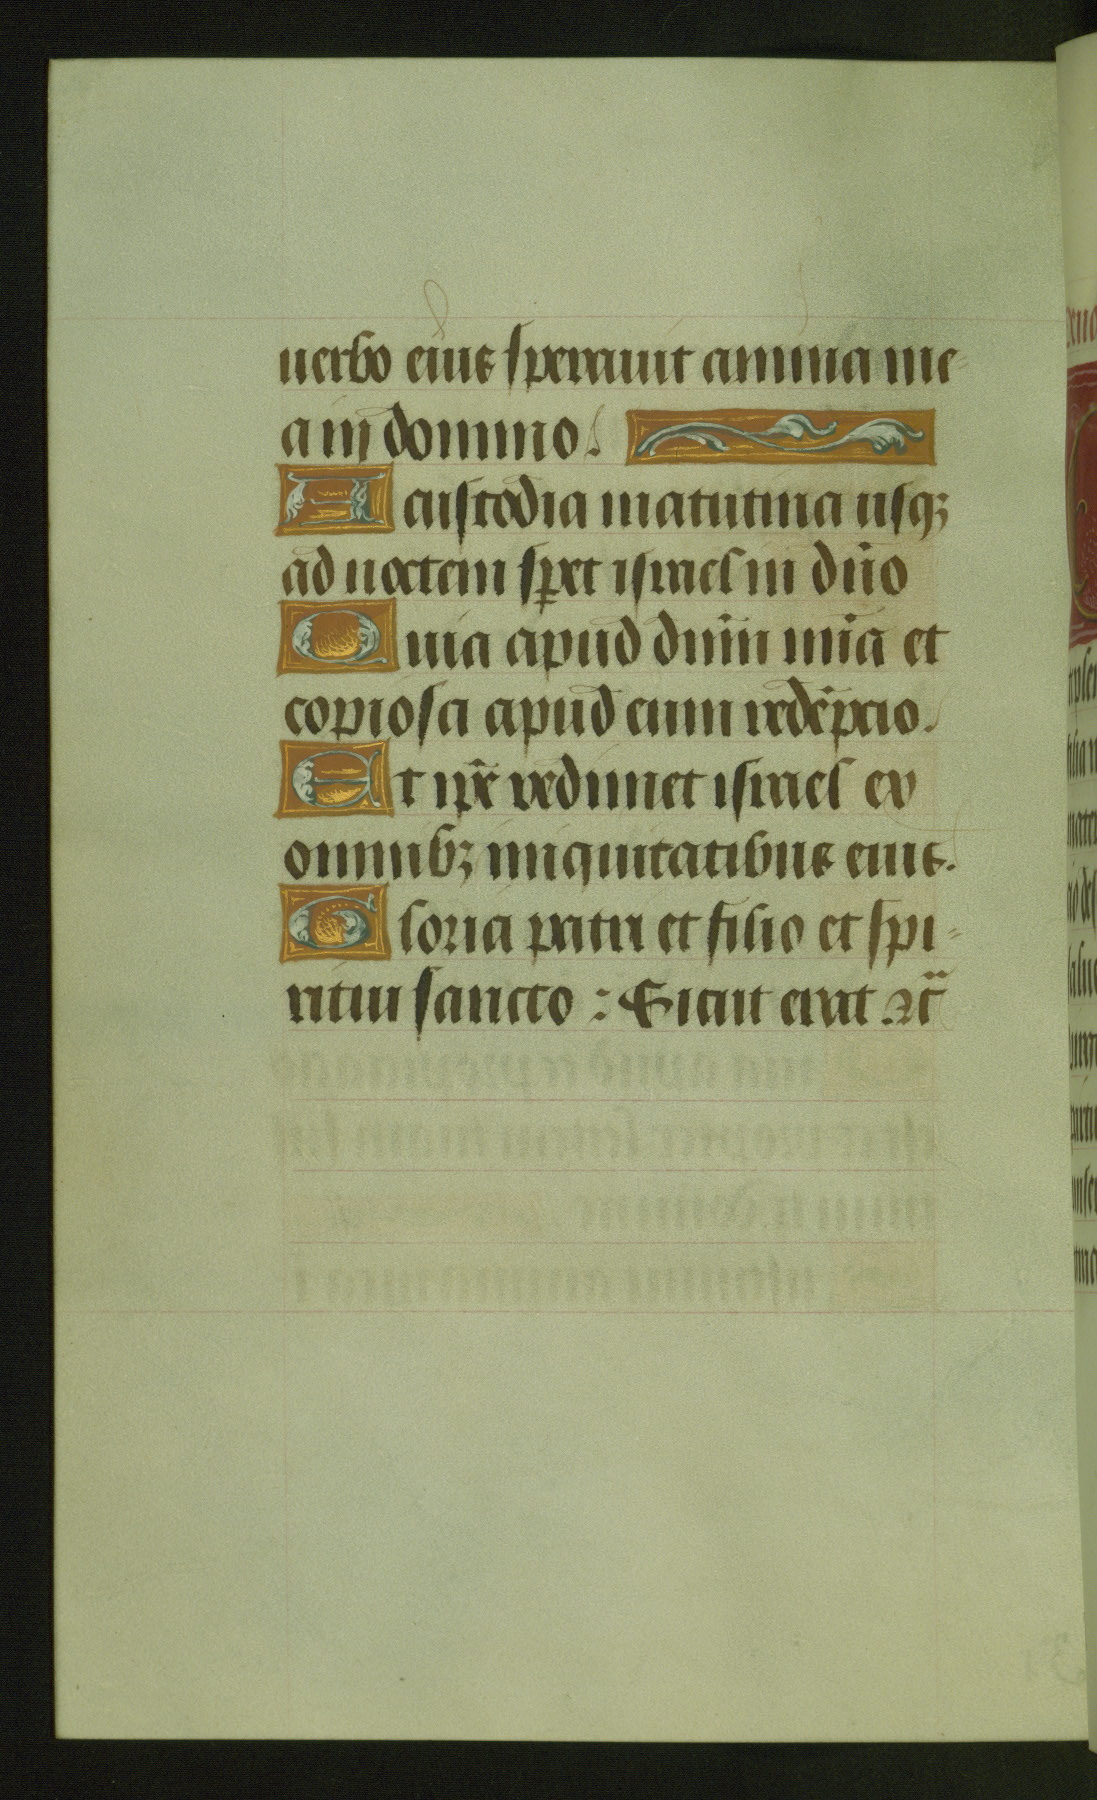 uerbo eius sperauit anima me-
a in domino.
A custodia matutina usqz
ad noctem speret israel in dño
Quia apud dñm mĩa et
copiosa apud eum redẽpcio.
Et ipẽ redimet israel ex
omnibz iniquitatibus eius.
Gloria patri et filio et spi-
ritui sancto : Sicut erat ⁊c̃